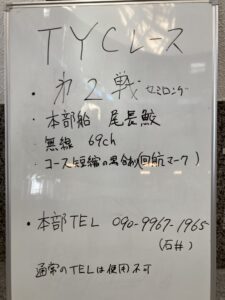 TYCレース
・第2戦 セミロング
・本部船 尾長鮫
・無線 69ch
・コース短縮の場合あり(回航マーク)
・本部TEL 090-9967-1965
(石井)
通常のTELは使用不可